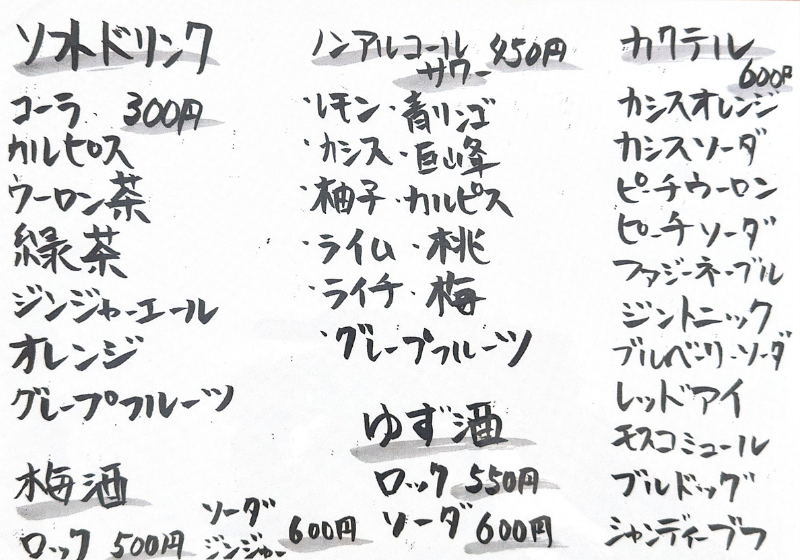 ソフトドリンク
コーラ 300円
カルピス
ウーロン茶
緑茶
ジンジャーエール
オレンジ
グレープフルーツ
梅酒
ロック 500円
ソーダ
ジンジャー 600円
ノンアルコール
サワー 450円
・レモン・青リンゴ
・カシス・巨峰
・柚子・カルピス
・ライム・桃
・ライチ・梅
・グレープフルーツ
ゆず酒
ロック 550円
ソーダ 600円
カクテル
600円
カシスオレンジ
カシスソーダ
ピーチウーロン
ピーチソーダ
ファジーネーブル
ジントニック
ブルーベリーソーダ
レッドアイ
モスコミュール
ブルドッグ
シャンディーガフ